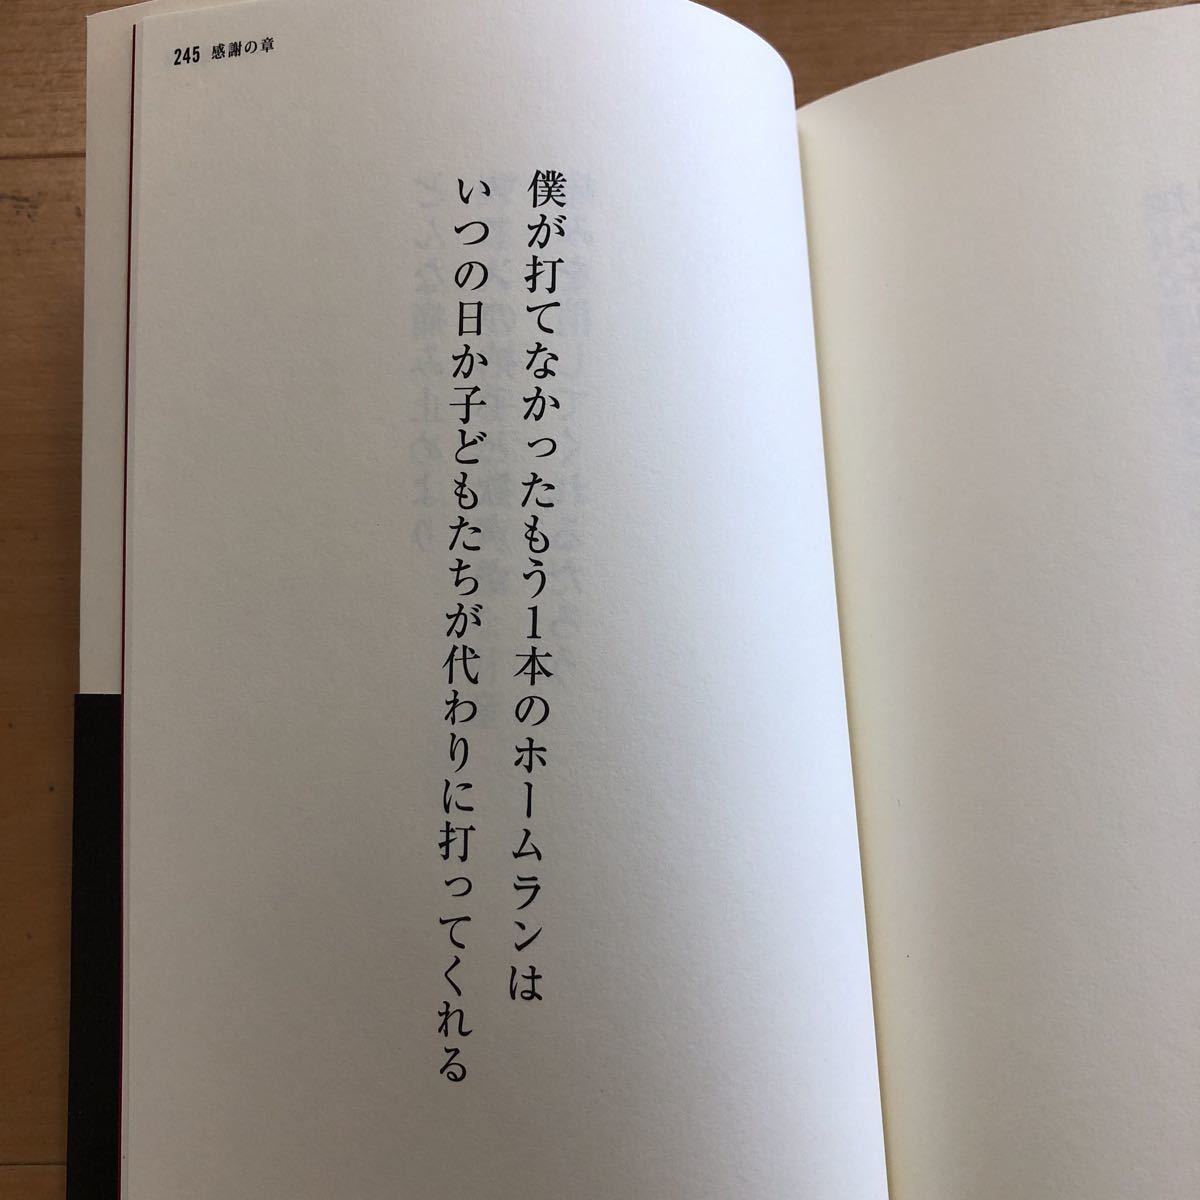 245 感謝の章
僕が打てなかったもう1本のホームランは
いつの日か子どもたちが代わりに打ってくれる